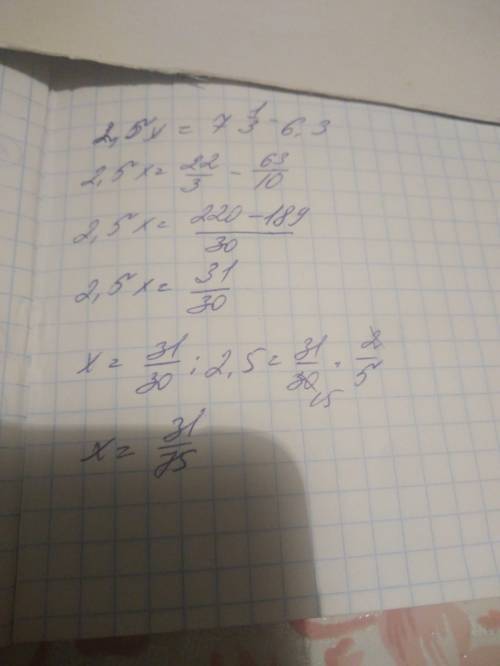 2,5x = 7 1/3 - 6,3
2,5x = 22/3 - 63/10
2,5x = (220 - 189)/30
2,5x = 31/30
x = 31/30 : 2,5 = 31/30 · 2/5
15
x = 31/75